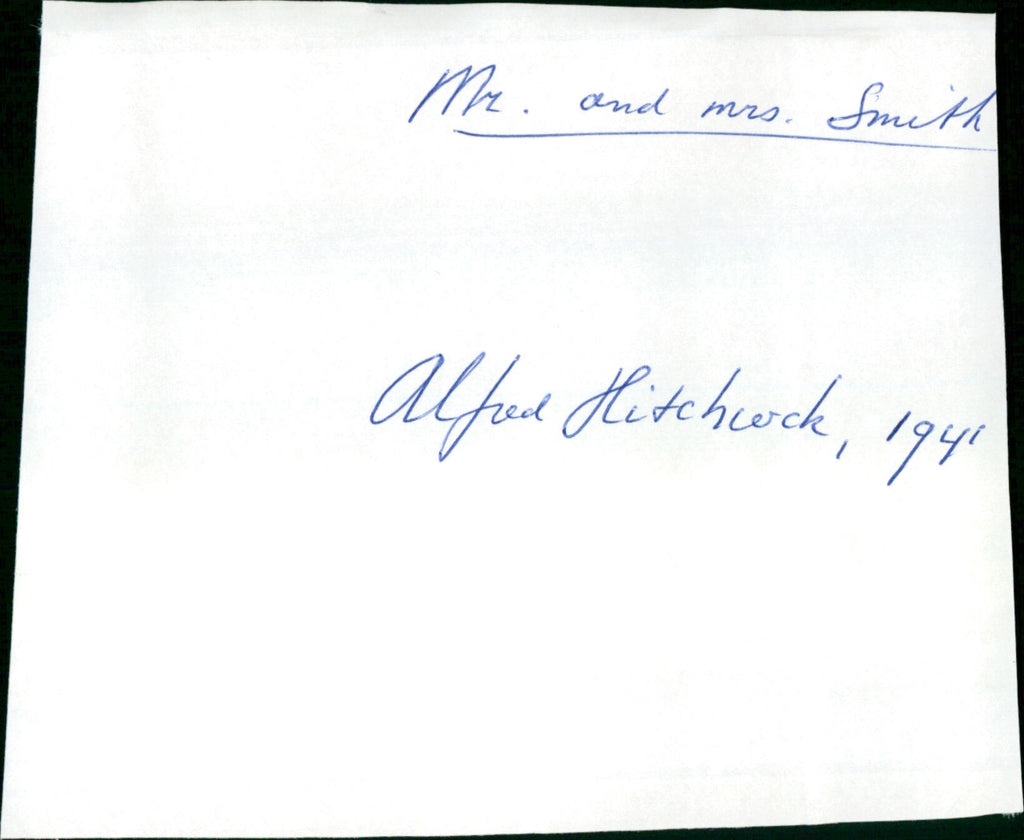 Mr. and mrs. Smith
Alfred Hitchcock, 1941